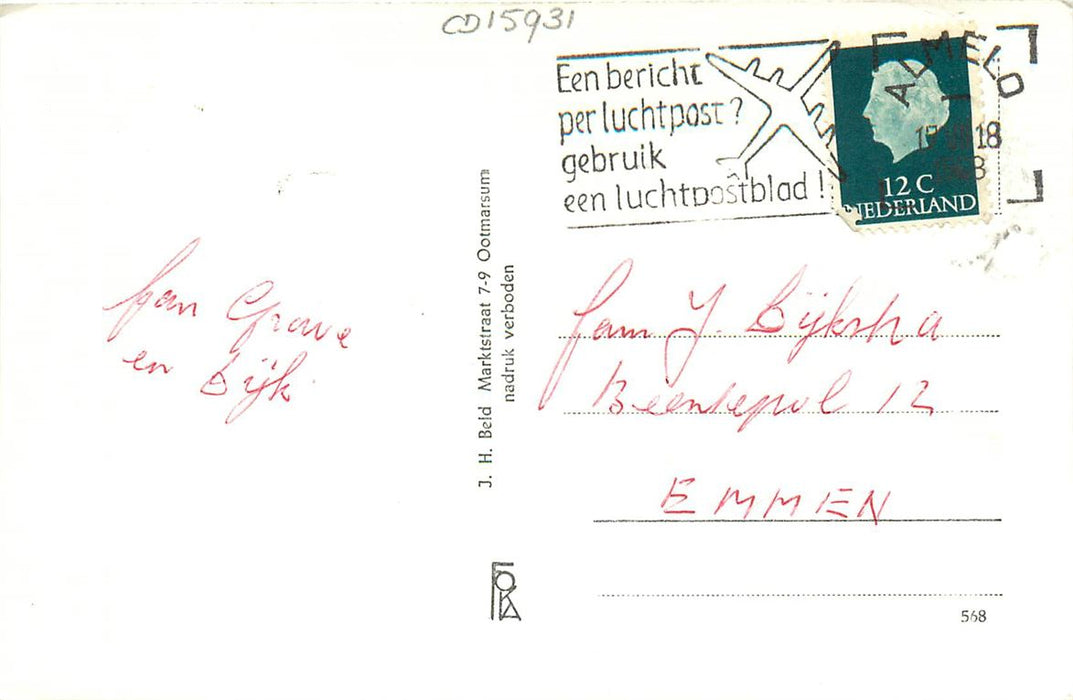 CD15931
Een bericht
per luchtpost?
gebruik
een luchtpostblad!
ALMELO
18
12 C
NEDERLAND
fam Grove
en Dijk
J. H. Beld Marktstraat 7-9 Ootmarsum
nadruk verboden
fam J. Dijkstra
12
EMMEN
FOKA
568